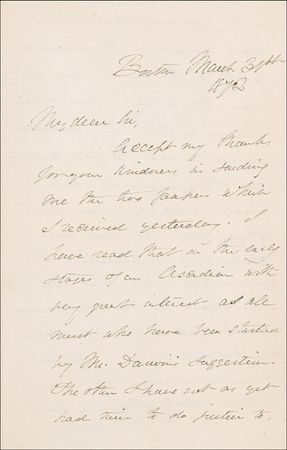 Boston March 31st
1873
My dear Sir,
Accept my thanks
for your kindness in sending
me the two papers which
I received yesterday. I
have read that on the early
stages of an Ascidian with
very great interest, as all
must who have been startled
by Mr. Darwin's suggestion.
The other I have not as yet
had time to do justice to,